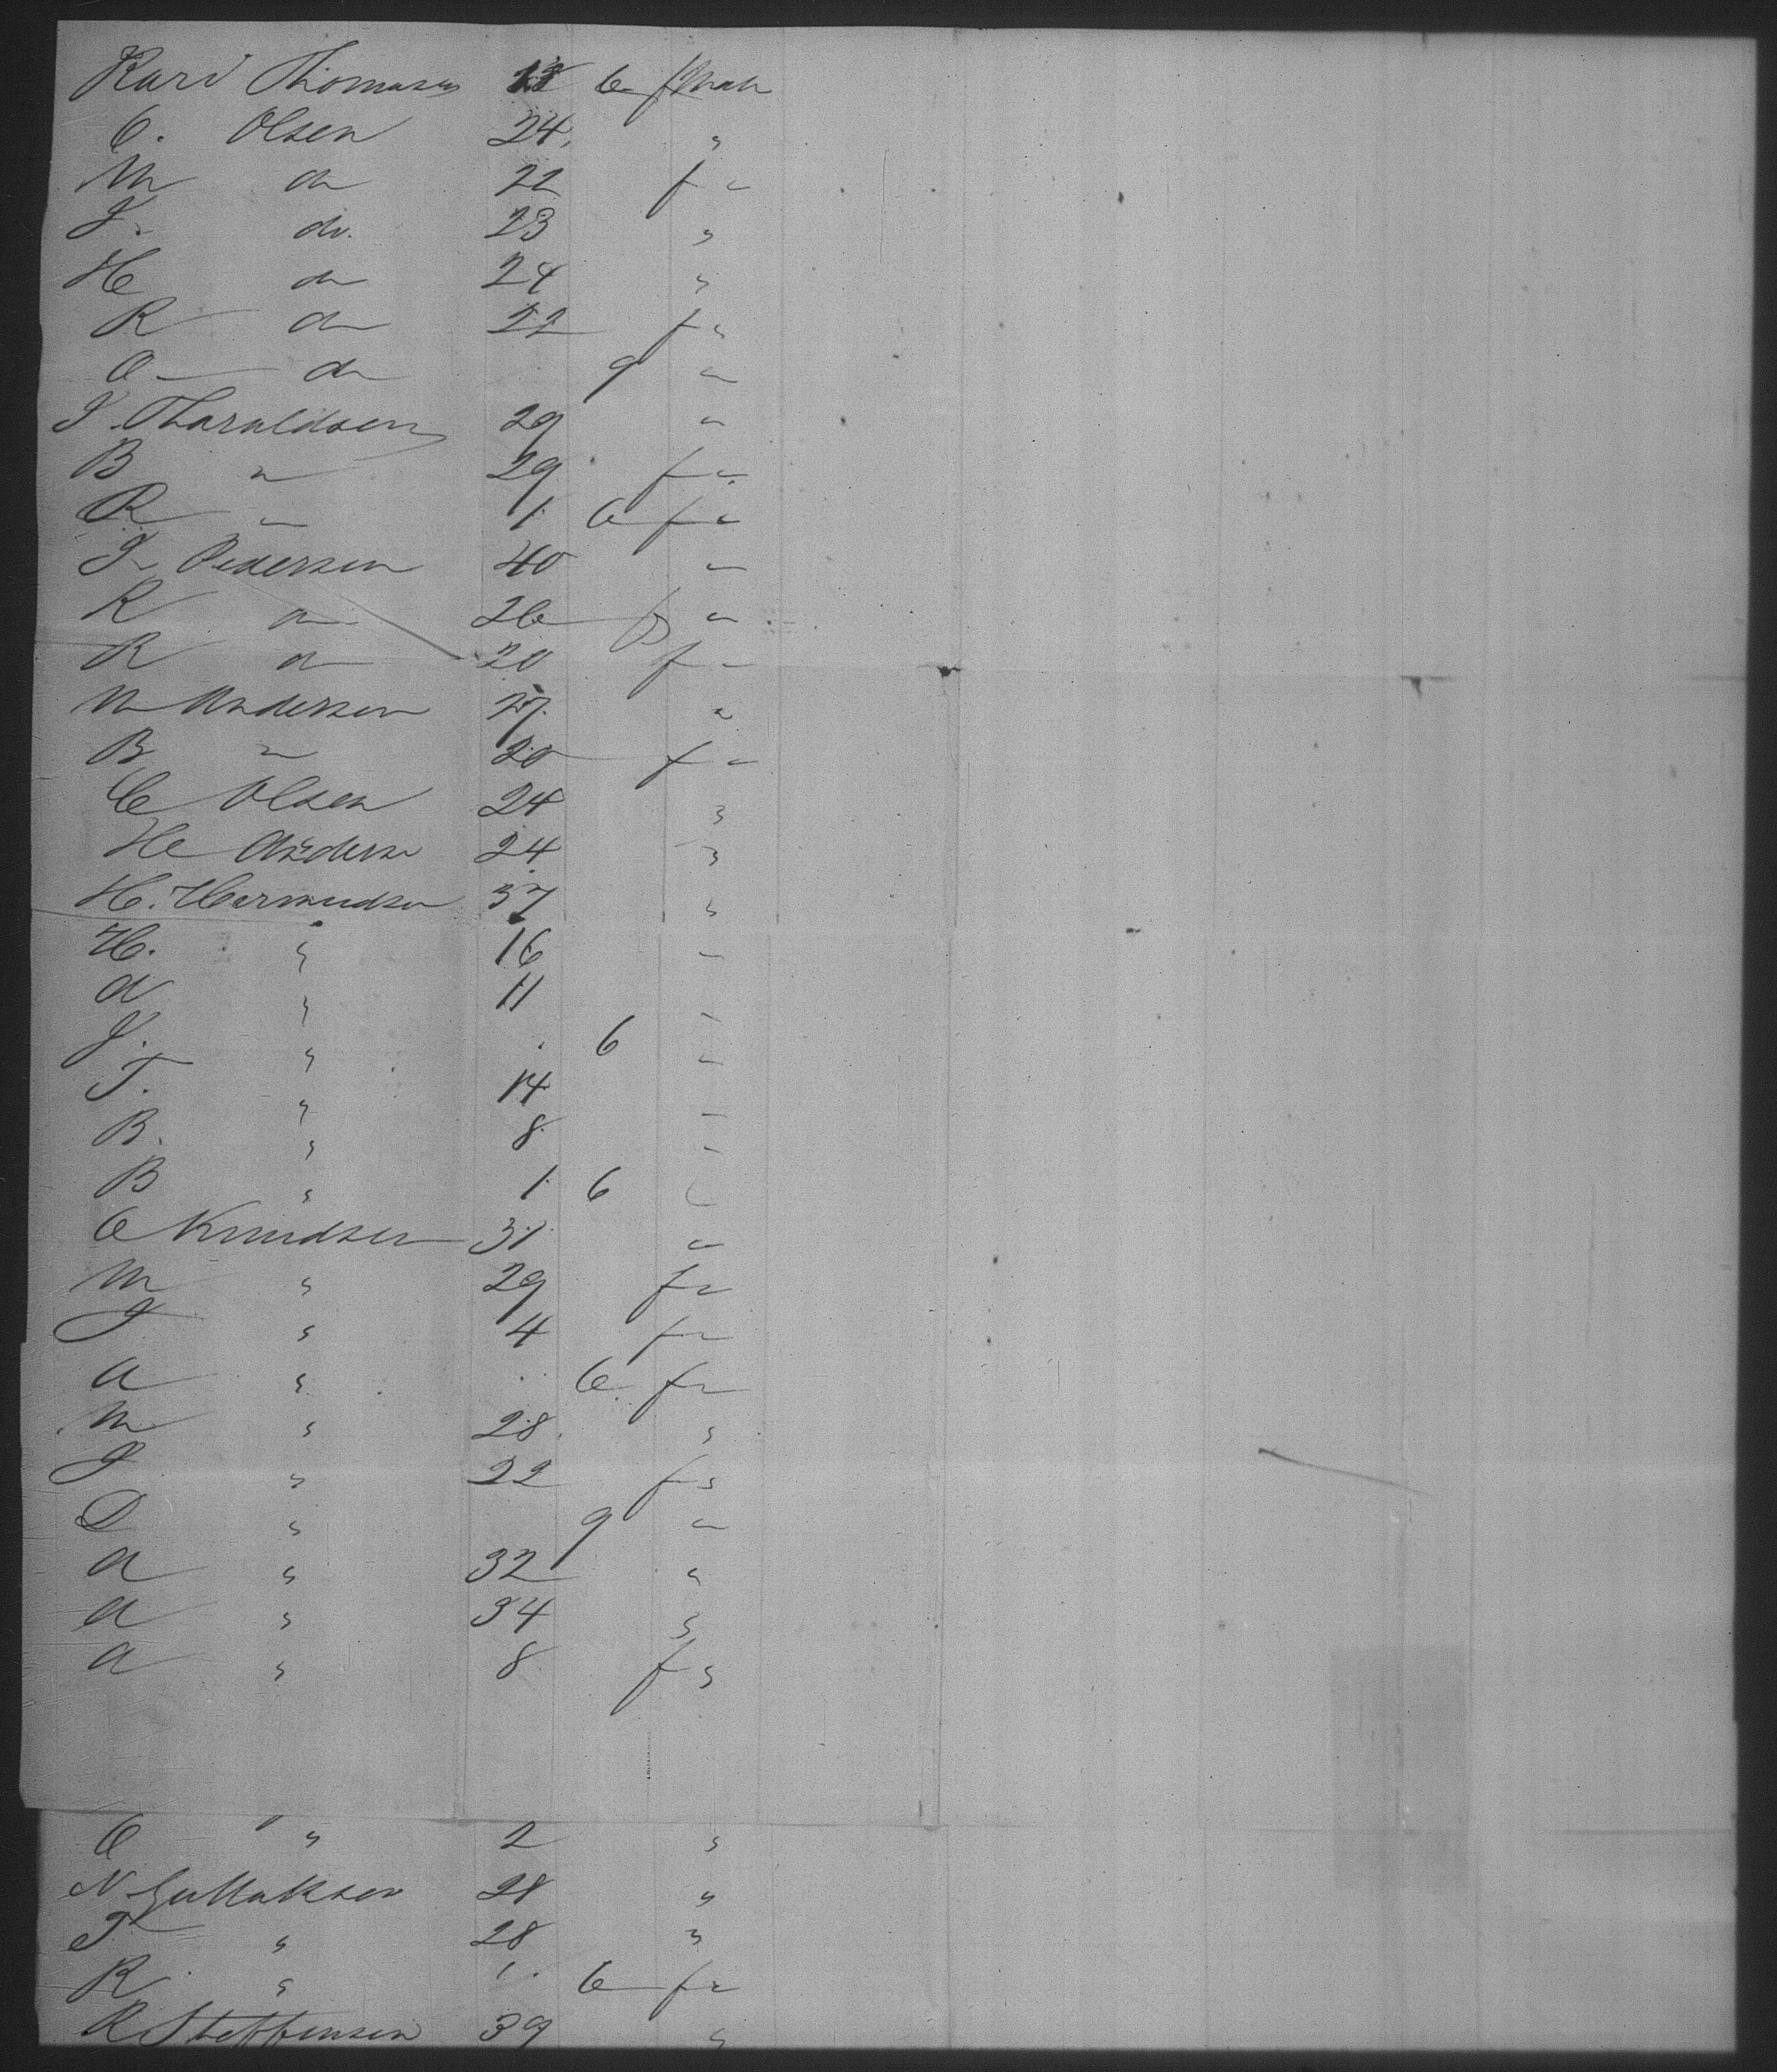 Kari Thomasen 18 6 f
C. Olsen 24 "
M do 22 f "
J. do. 23 "
H do 24 "
R do 22 f "
O do 9 "
J. Tharaldsen 29 "
B " 29 f "
R " 1 6 f "
J. Pedersen 40 "
R do 26 f "
R do 20 f "
M Andersen 27 "
B " 20 f "
C Olsen 24 "
H Anderse 24 "
H. Hermundsen 37 "
H. " 16 "
A " 11 "
J. " 6 "
T. " 14 "
B. " 8 "
B " 1 6 "
C Knudsen 31 "
M " 29 f "
J " 4 f "
A " 6 f "
M " 28 "
J " 22 f "
O " 9 "
A " 32 "
A " 34 "
A " 8 f "
C " 2 "
N Gullaksen 28 "
T " 28 "
R " 1 6 f "
R Steffensen 39 "